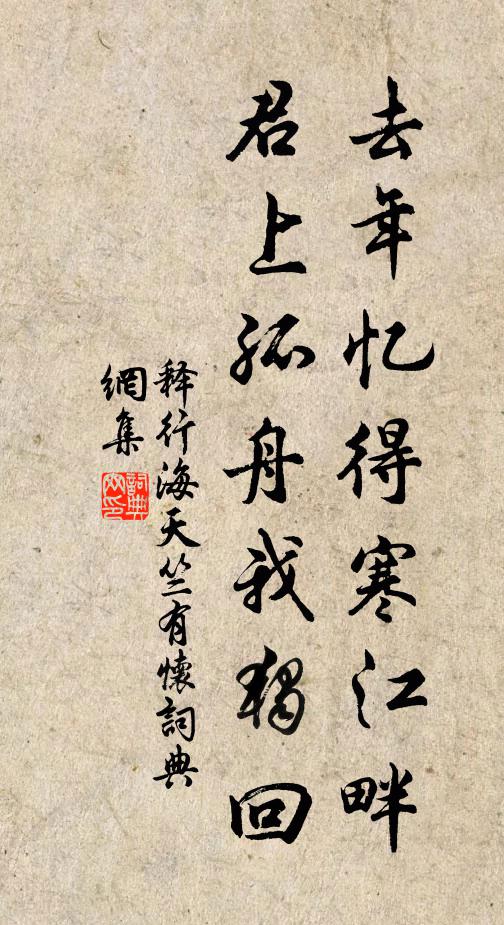 去年忆得寒江畔
君上孤舟我独回
释行海天竺有懷詞典
網集
詞典